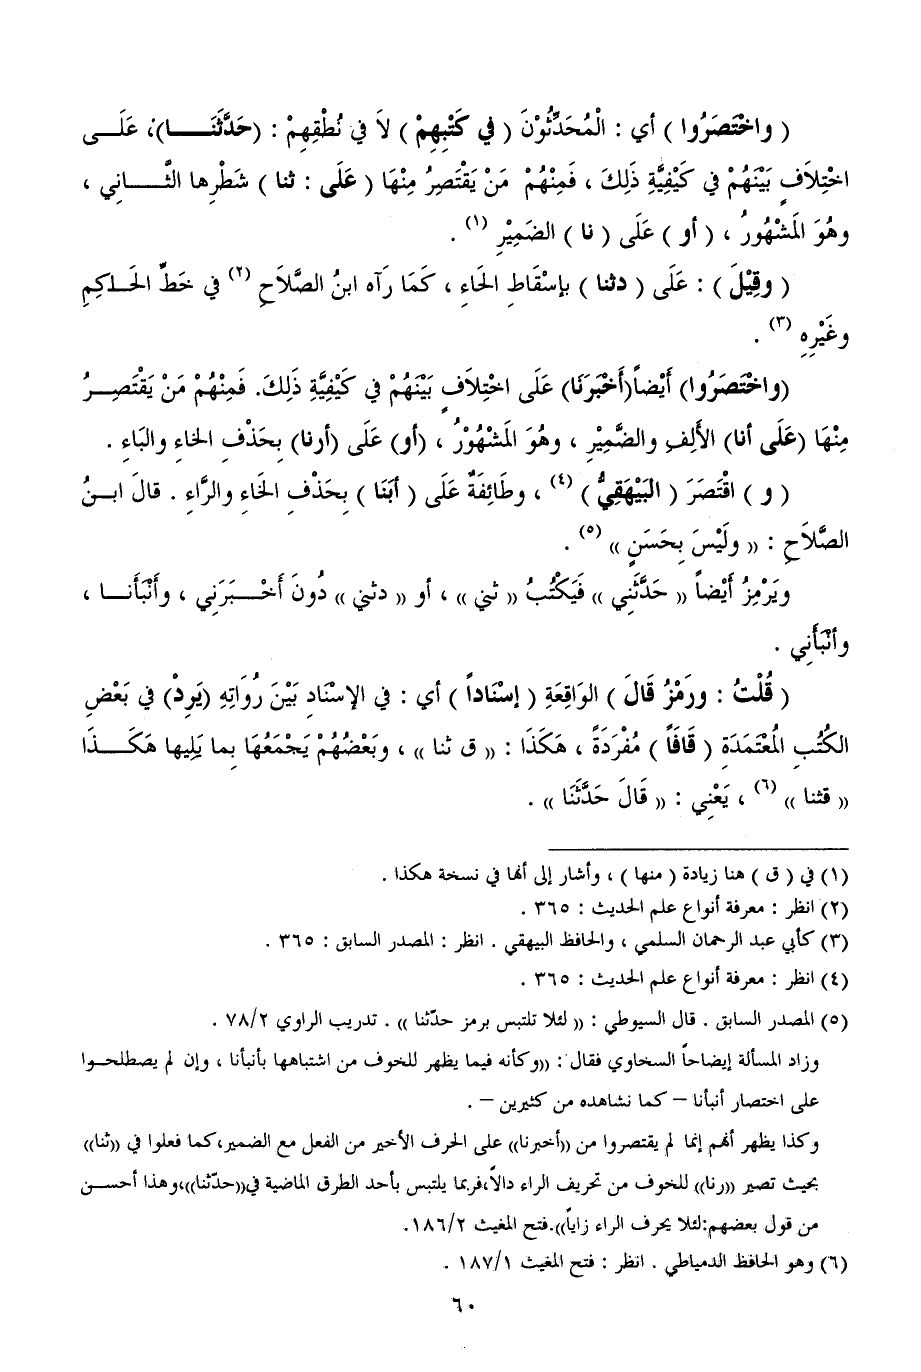 ( واخْتَصَرُوا ) أي : الْمُحَدِّثُوْنَ ( في كَتْبِهِمْ ) لاَ في نُطْقِهِمْ : (حَدَّثَنَـــــا)؛ عَلَــى
اخْتِلاَفٍ بَيْنَهُمْ في كَيْفِيَّةِ ذَلِكَ ، فَمِنْهُمْ مَنْ يَقْتَصِرُ مِنْهَا ( عَلَى : ثنا ) شَطْرِها الثَّــــانِي ،
وهُوَ المَشْهُورُ ، ( أو ) عَلَى ( نا ) الضَمِيْرِ (١) .
( وقِيْلَ ) : عَلَى ( دثنا ) بإسْقَاطِ الحَاءِ ، كَمَا رَآه ابنُ الصَّلاَحِ (٢) في خَطِّ الحَـاكِمِ
وغَيْرِهِ (٣) .
(واخْتَصَرُوا) أَيْضاً(أَخْبَرَنَا) عَلَى اخْتِلاَفٍ بَيْنَهُمْ في كَيْفِيَّةِ ذَلِكَ. فَمِنْهُمْ مَنْ يَقْتَصِــرُ
مِنْهَا (عَلَى أنا) الأَلِفِ والضَّمِيْرِ ، وهُوَ المَشْهُوْرُ ، (أو) عَلَى (أرنا) بحَذْفِ الخاءِ والبَاءِ .
( و ) اقْتَصَرَ ( البَيْهَقِيُّ ) (٤) ، وطَائِفَةٌ عَلَى ( أبَنَا ) بحَذْفِ الخَاءِ والرَّاءِ . قالَ ابـنُ
الصَّلاَحِ : (( ولَيْسَ بِحَسَنٍ )) (٥) .
ويَرْمِزُ أَيْضاً (( حَدَّثَنِي )) فَيَكْتُبُ (( ثني )) ، أو (( دثني )) دُونَ أَخْـــبَرَنِي ، وأَنْبَأَنــا ،
وأنْبَأَنِي .
( قُلْتُ : ورَمْزُ قَالَ ) الوَاقِعَةِ ( إسْنَاداً ) أي : في الإسْنَادِ بَيْنَ رُوَاتِهِ (يَرِدْ) في بَعْضِ
الكُتُبِ المُعْتَمَدَةِ ( قَافَاً ) مُفْرَدَةً ، هَكَذَا : (( ق ثنا )) ، وبَعْضُهُمْ يَجْمَعُهَا بما يَلِيها هَكَــــذَا
(( قثنا )) (٦) ، يَعْنِي : (( قَالَ حَدَّثَنَا )) .
(١) في ( ق ) هنا زيادة ( منها ) ، وأشار إلى أنها في نسخة هكذا .
(٢) انظر : معرفة أنواع علم الحديث : ٣٦٥ .
(٣) كأبي عبد الرحمان السلمي ، والحافظ البيهقي . انظر : المصدر السابق : ٣٦٥ .
(٤) انظر : معرفة أنواع علم الحديث : ٣٦٥ .
(٥) المصدر السابق . قال السيوطي : (( لئلا تلتبس برمز حدّثنا )) . تدريب الراوي ٧٨/٢ .
وزاد المسألة إيضاحاً السخاوي فقال : ((وكأنه فيما يظهر للخوف من اشتباهها بأنبأنا ، وإن لم يصطلحــوا
على اختصار أنبأنا – كما نشاهده من كثيرين – .
وكذا يظهر أنهم إنما لم يقتصروا من ((أخبرنا)) على الحرف الأخير من الفعل مع الضمير،كما فعلوا في ((ثنا))
بحيث تصير ((رنا)) للخوف من تحريف الراء دالاً،فربما يلتبس بأحد الطرق الماضية في((حدّثنا))،وهذا أحســن
من قول بعضهم:لئلا يحرف الراء زاياً)).فتح المغيث ١٨٦/٢.
(٦) وهو الحافظ الدمياطي . انظر : فتح المغيث ١٨٧/١ .
٦٠